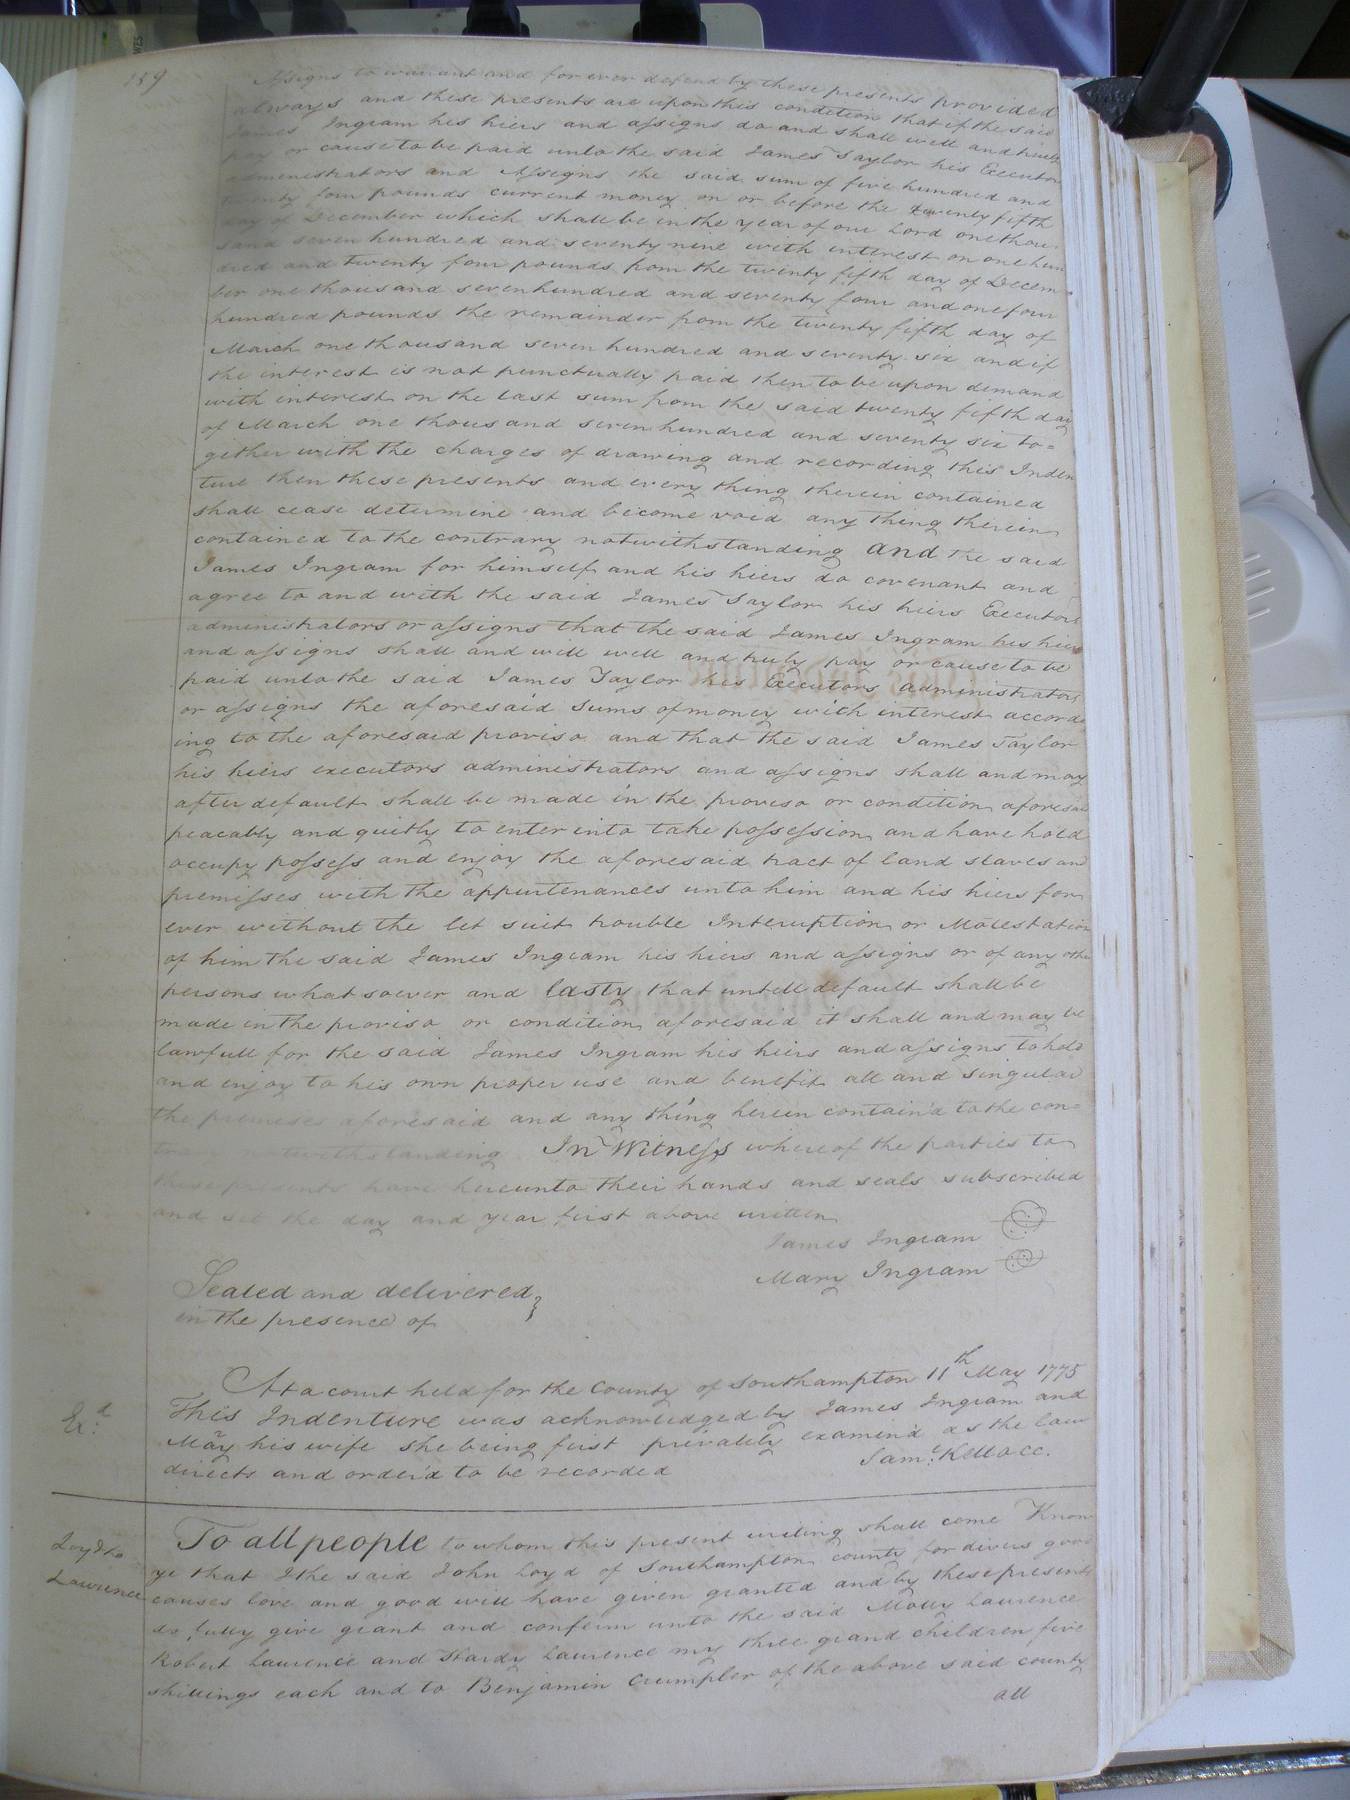 159
Assigns to warrant and for ever defend by these presents provided
always and these presents are upon this condition that if the said
James Ingram his hiers and assigns do and shall well and truly
pay or cause to be paid unto the said James Taylor his Executors
administrators and Assigns the said sum of five hundred and
twenty four pounds current money on or before the twenty fifth
day of December which shall be in the year of our Lord one thou-
sand seven hundred and seventy nine with interest on one hun
dred and twenty four pounds from the twenty fifth day of Decem-
ber one thousand seven hundred and seventy four and one four
hundred pounds the remainder from the twenty fifth day of
March one thousand seven hundred and seventy six and if
the interest is not punctually paid then to be upon demand
with interest on the last sum from the said twenty fifth day
of March one thousand seven hundred and seventy six to=
gither with the charges of drawing and recording this Inden
ture then these presents and every thing therein contained
shall cease determine and become void any thing therein
contained to the contrary notwithstanding and the said
James Ingram for himself and his hiers do covenant and
agree to and with the said James Taylor his hiers Executors
administrators or assigns that the said James Ingram his hiers
and assigns shall and will well and truly pay or cause to be
paid unto the said James Taylor his Executors administrators
or assigns the aforesaid sums of money with interest accord
ing to the aforesaid proviso and that the said James Taylor
his hiers executors administrators and assigns shall and may
after default shall be made in the proviso or condition aforesaid
peacably and quitly to enter into take possession and have hold
occupy possess and enjoy the aforesaid tract of land slaves and
premisses with the appurtenances unto him and his hiers for
ever without the let suit trouble Interuption or Molestation
of him the said James Ingram his hiers and assigns or of any other
persons whatsoever and lasty that untill default shall be
made in the proviso or condition aforesaid it shall and may be
lawfull for the said James Ingram his hiers and assigns to hold
and enjoy to his own proper use and benefit all and singular
the premises aforesaid and any thing herein contain'd to the con-
trary notwithstanding In Witness whereof the parties to
these presents have hereunto their hands and seals subscribed
and set the day and year first above written
James Ingram
Mary Ingram
Sealed and delivered
in the presence of
At a court held for the County of Southampton 11th May 1775
Exd.
This Indenture was acknowledged by James Ingram and
May his wife she being first privately examin'd as the law
directs and order'd to be recorded Saml. Kello CC.
Loyd to
Lawrence
To all people to whom this present writing shall come Know
ye that I the said John Loyd of Southampton county for divers good
causes love and good will have given granted and by these presents
do fully give grant and confirm unto the said Molly Laurence
Robert Laurence and Hardy Laurence my three grand children five
shillings each and to Benjamin Crumpler of the above said county
all